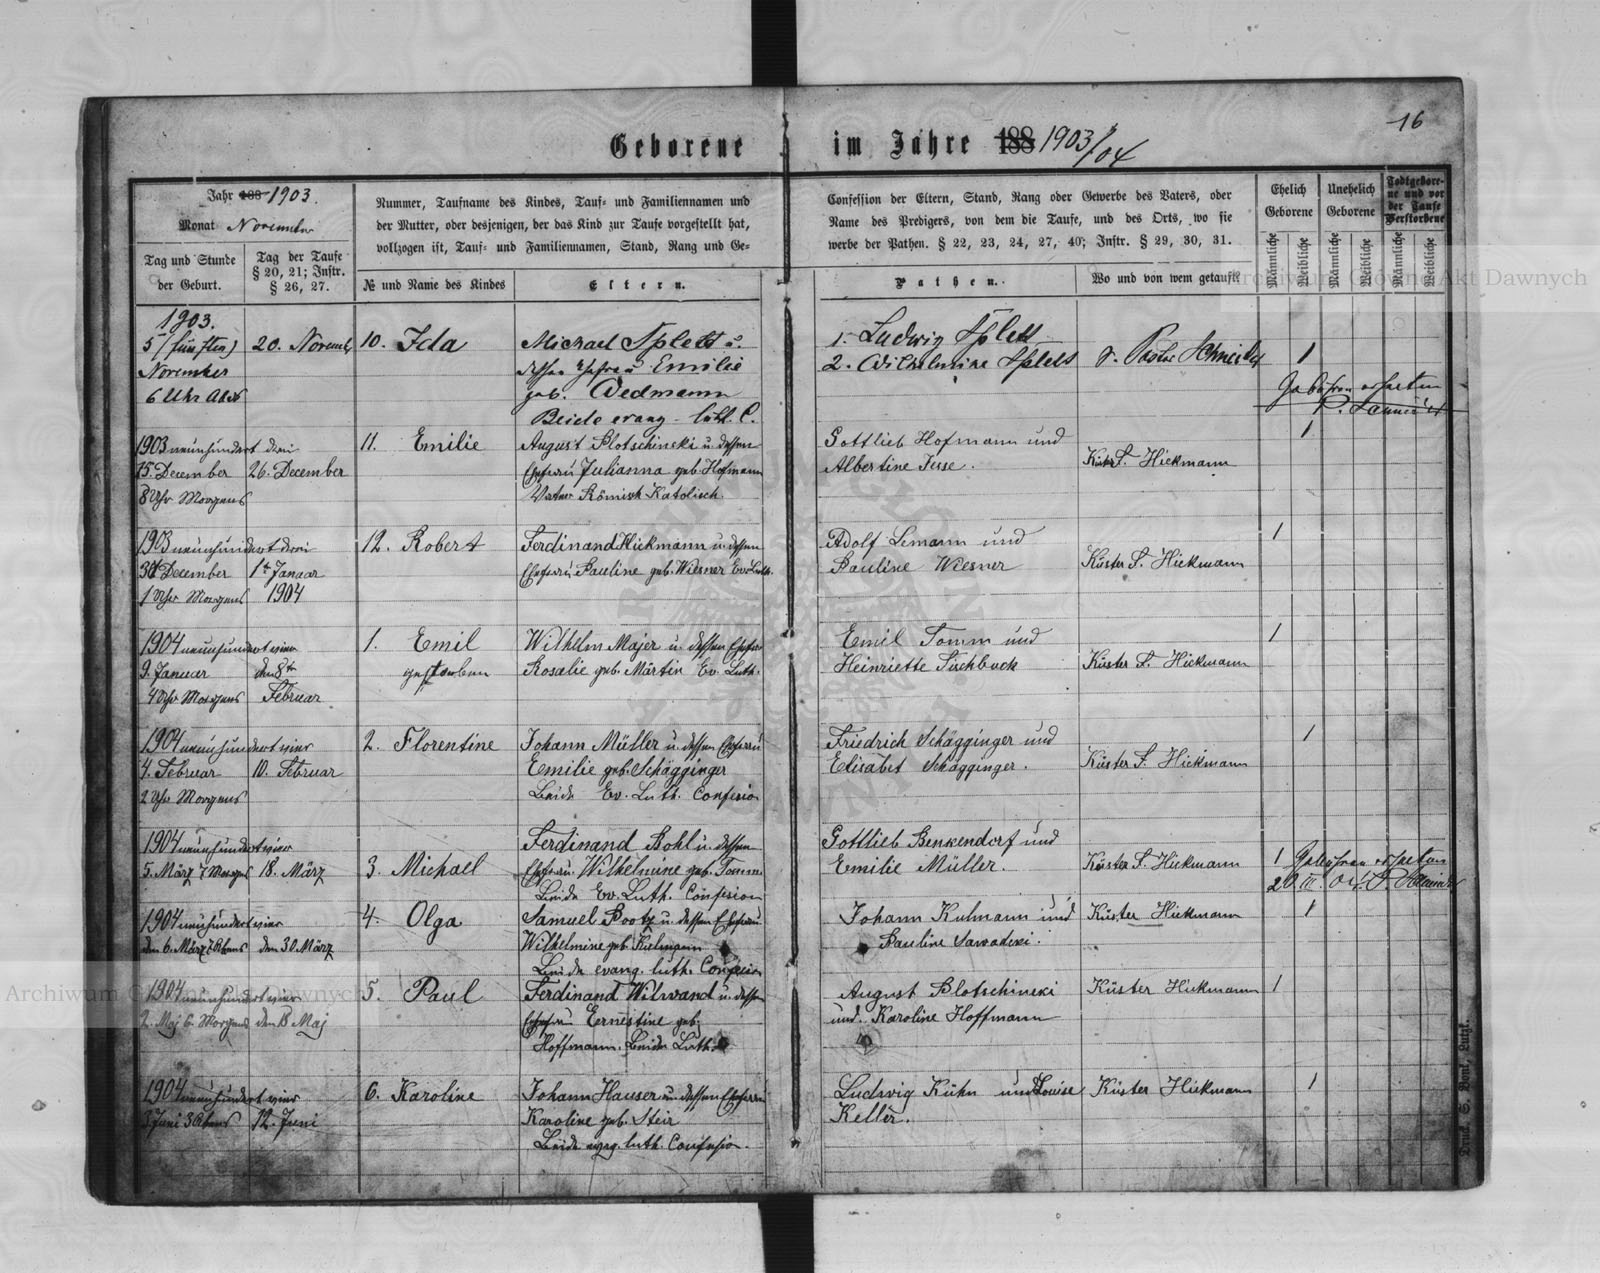 16
Geborene im Jahre 188 1903/04
Jahr 188 1903.
Monat November
Tag und Stunde der Geburt.
Tag der Taufe § 20, 21; Instr. § 26, 27.
Nummer, Taufname des Kindes, Tauf- und Familiennamen und
der Mutter, oder desjenigen, der das Kind zur Taufe vorgestellt hat,
vollzogen ist, Tauf- und Familiennamen, Stand, Rang und Ge-
№ und Name des Kindes
Eltern.
Confession der Eltern, Stand, Rang oder Gewerbe des Vaters, oder
Name des Predigers, von dem die Taufe, und des Orts, wo sie
werbe der Pathen. § 22, 23, 24, 27, 40; Instr. § 29, 30, 31.
Pathen.
Wo und von wem getauft?
Ehelich Geborene
Unehelich Geborene
Todtgeborene und vor der Taufe Verstorbene
Männliche
Weibliche
Männliche
Weibliche
Männliche
Weibliche
1903.
5 (fünften) 20. Novemb 10. Ida Michael Splett u. 1. Ludwig Splett
November dessen Ehefrau Emilie 2. Wilhelmine Splett d. Pastor 1
6 Uhr Abds geb. Wedmann
Beide evang-luth. C.
1903 neunhundert drei 11. Emilie August Blotschinski u. dessen Gottlieb Hofmann und 1
15. December 26. December Ehefrau Julianna geb. Hofmann Albertine Jesse. Küster S. Hickmann
8 Uhr Morgens Vater Römisch Katolisch.
1903 neunhundert drei 12. Robert Ferdinand Hickmann u. dessen Adolf Lemann und 1
December 1t Januar Ehefrau Pauline geb. Wiesner Ev. Luth. Pauline Wiesner Küster S. Hickmann
1 Uhr Morgens 1904
1904 neunhundert vier 1. Emil Wilhelm Majer u. dessen Ehefrau Emil Tomm und 1
9. Januar den 8tn gestorben Rosalie geb. Märtin Ev. Luth. Heinriette Küster S. Hickmann
4 Uhr Morgens Februar
1904 neunhundert vier 2. Florentine Johann Müller u. dessen Ehefrau Friedrich Schägginger und 1
4. Februar 10. Februar Emilie geb. Schägginger Elisabet Schägginger. Küster S. Hickmann
2 Uhr Morgens Beide Ev. Luth. Confesion
1904 neunhundert vier Ferdinand Bohl u. dessen Gottlieb Benkendorf und
5. März 7 Morgens 18. März 3. Michael Ehefrau Wilhelmine geb. Tomm Emilie Müller. Küster S. Hickmann 1
Beide Ev. Luth. Confesion
1904 neunhundert vier 4. Olga Samuel Bootz u. dessen Ehefrau Johann Kulmann und Küster Hickmann 1
den 6. März Abens den 30. März Wilhelmine geb. Pauline Sawadski.
Beide evang. luth. Confesion
1904 neunhundert vier 5. Paul Ferdinand Wilwand u. dessen August Blotschinski Küster Hickmann 1
2. Maj 6. Morgens den 18 Maj Ehefrau Ernestine geb. und Karoline Hoffmann
Hoffmann. Beide Luth.
1904 neunhundert vier 6. Karoline Johann Hauser u. dessen Ehefrau Ludwig Kühn und Louise Küster Hickmann 1
3 Juni 3 Abens 12. Juni Karoline geb. Steir Keller.
Beide evag. luth. Confesion.
Archiwum Główne Akt Dawnych
Archiwum Główne Akt Dawnych